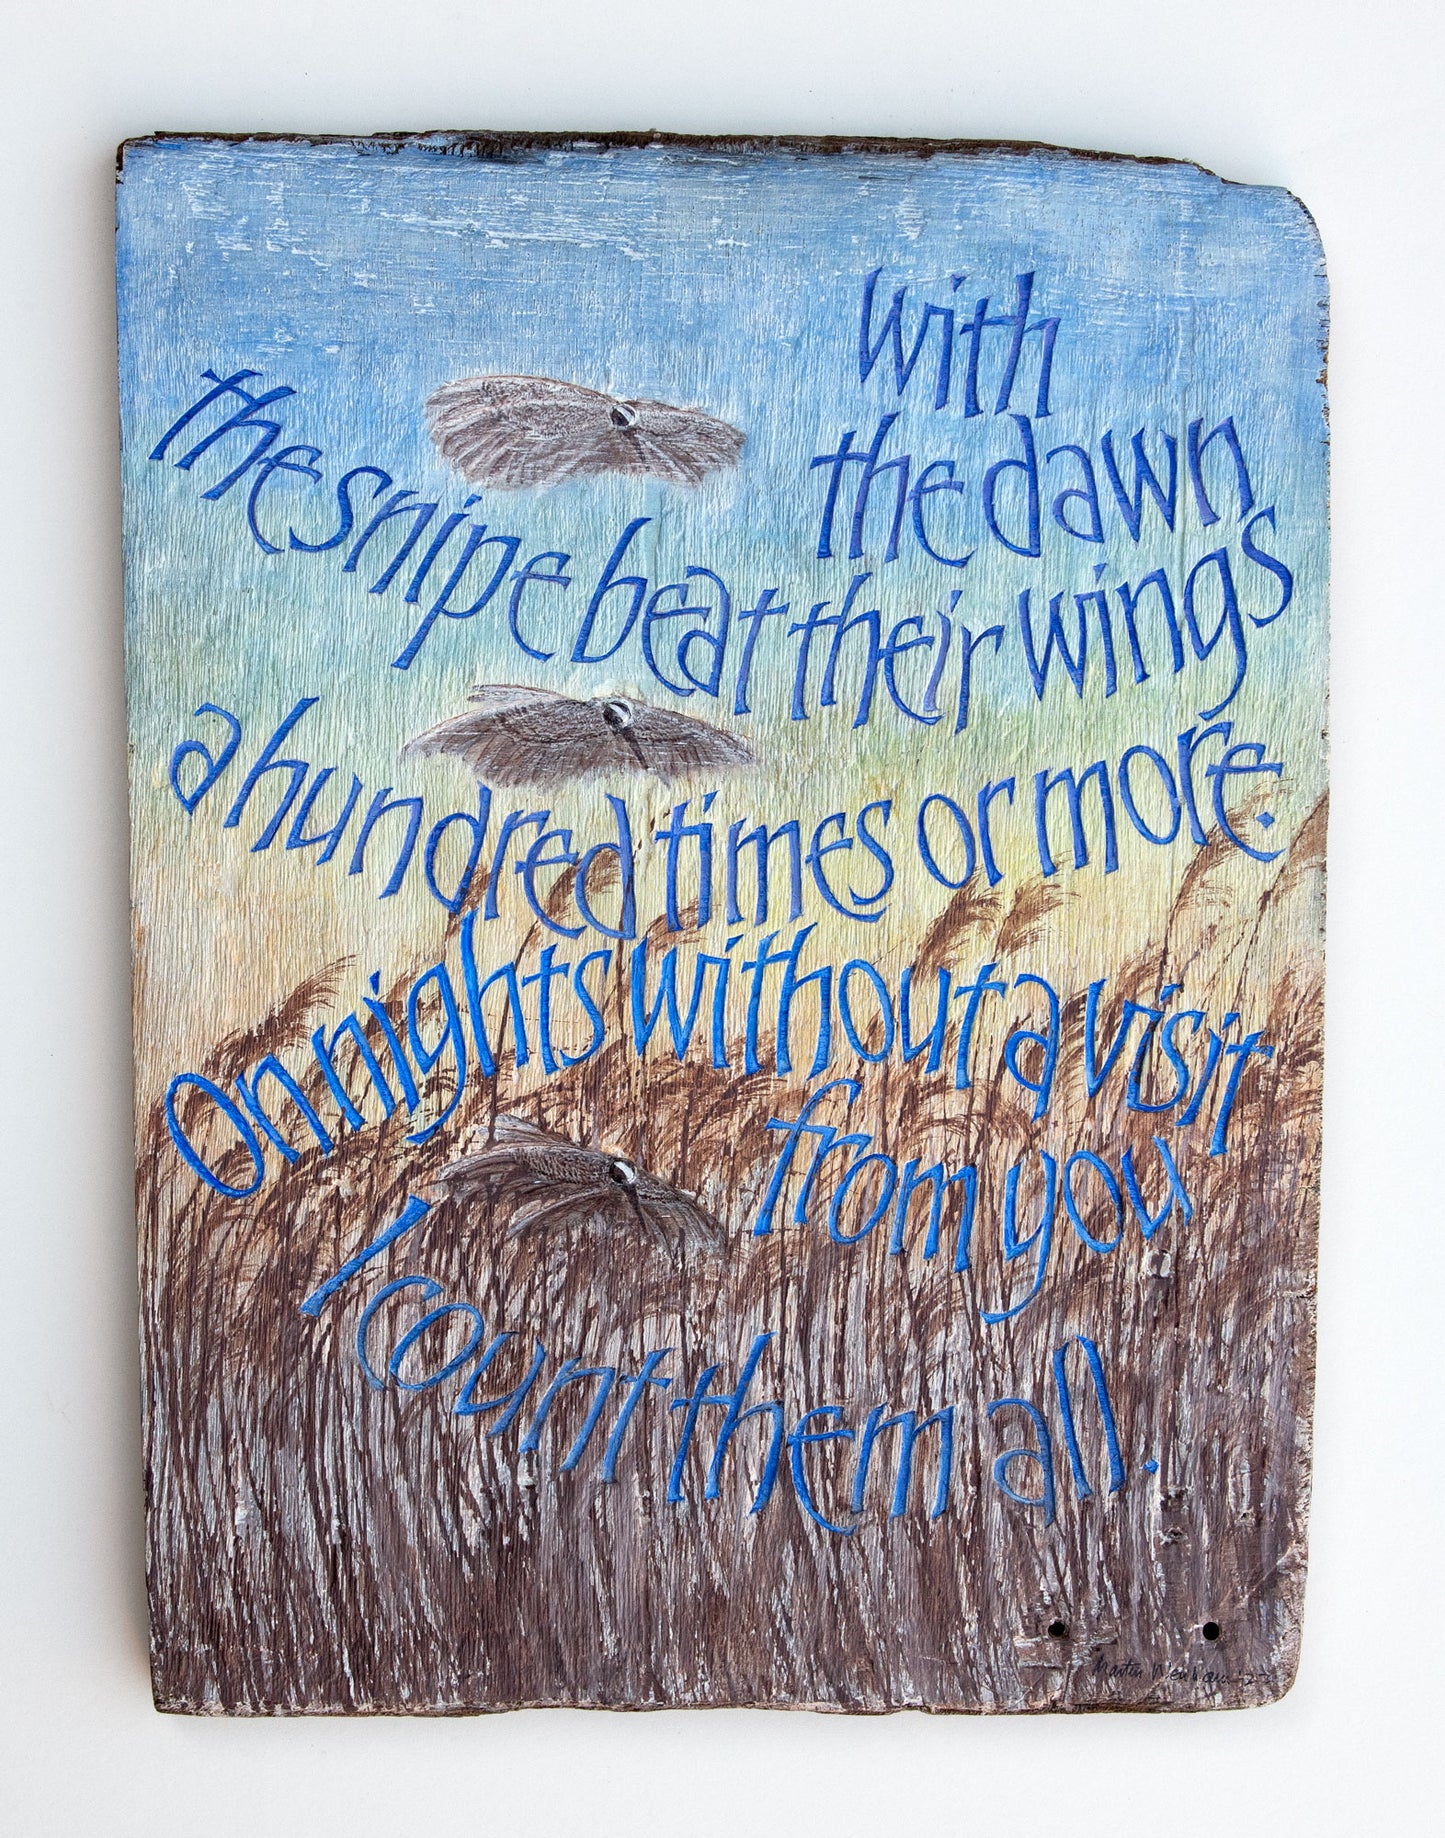 with
the dawn
the snipe beat their wings
a hundred times or more.
On nights without a visit
from you
I count them all.
Martin Wenham '22